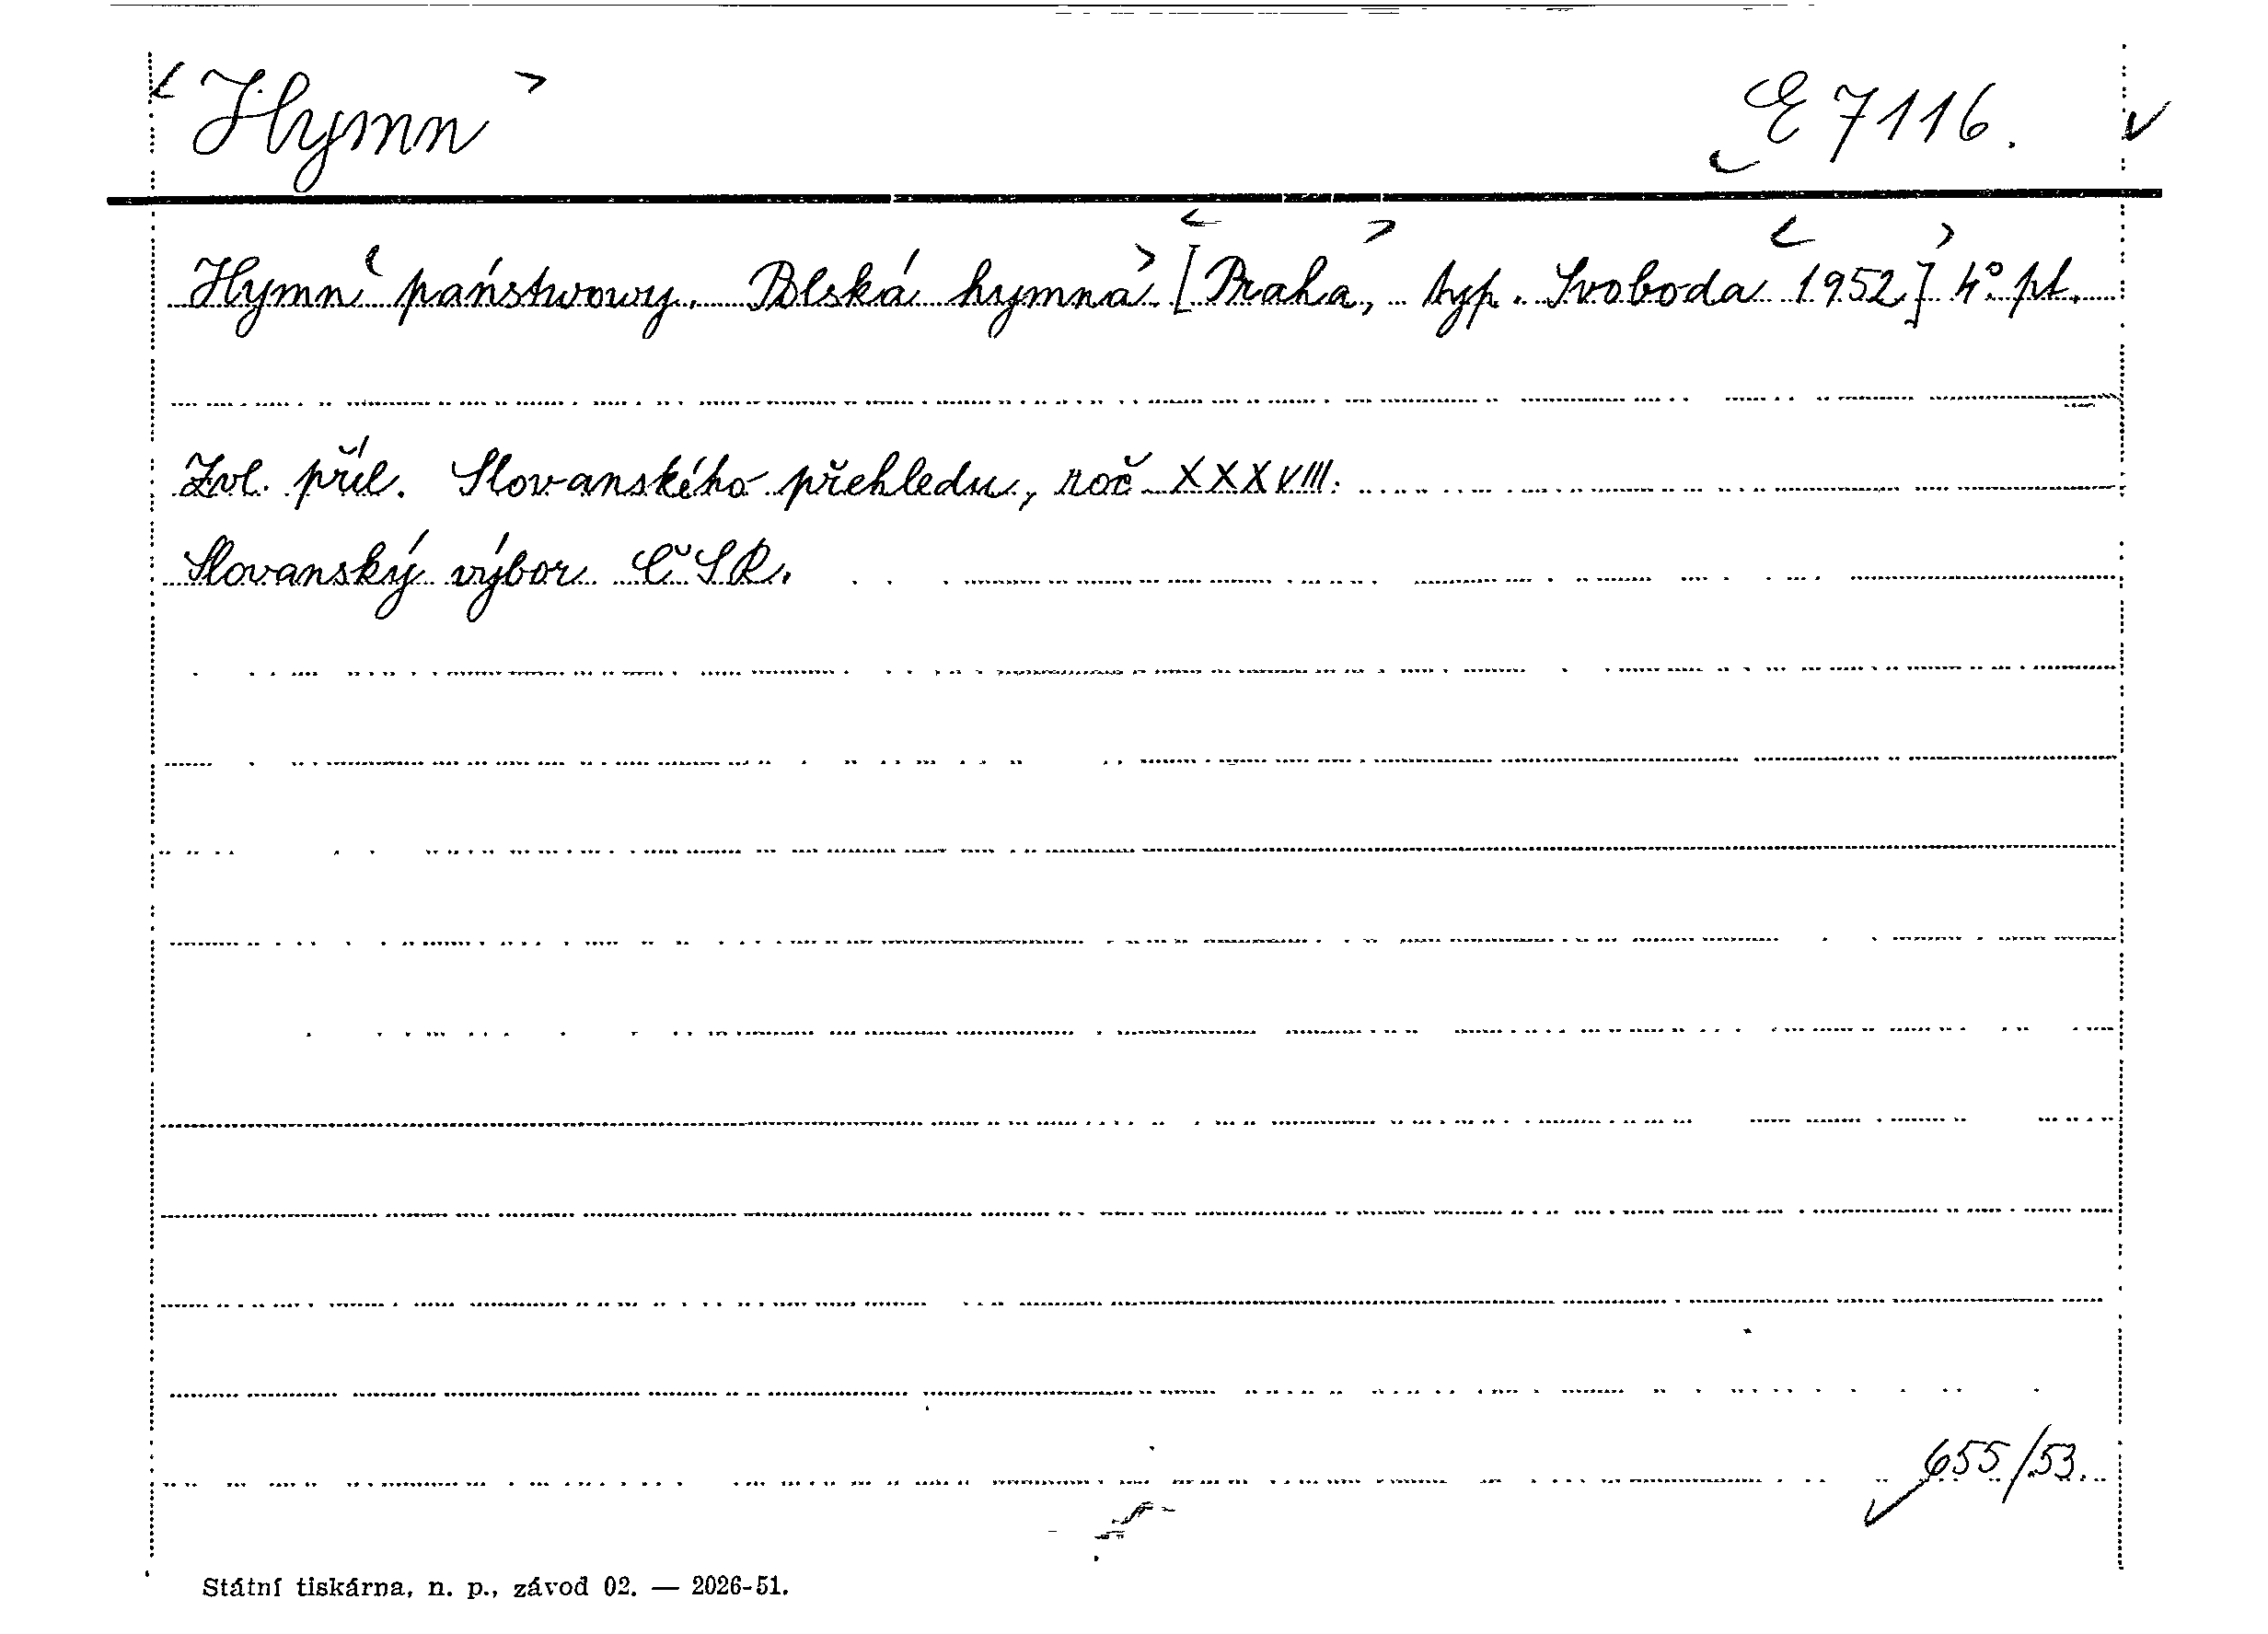 Hymn E 7116.
Hymn państwowy. Polská hymna [Praha, typ. Svoboda 1952] 4° pt.
Zvl. příl. Slovanského přehledu, roč XXXVIII.
Slovanský výbor ČSR.
655/53.
Státní tiskárna, n. p., závod 02. — 2026-51.